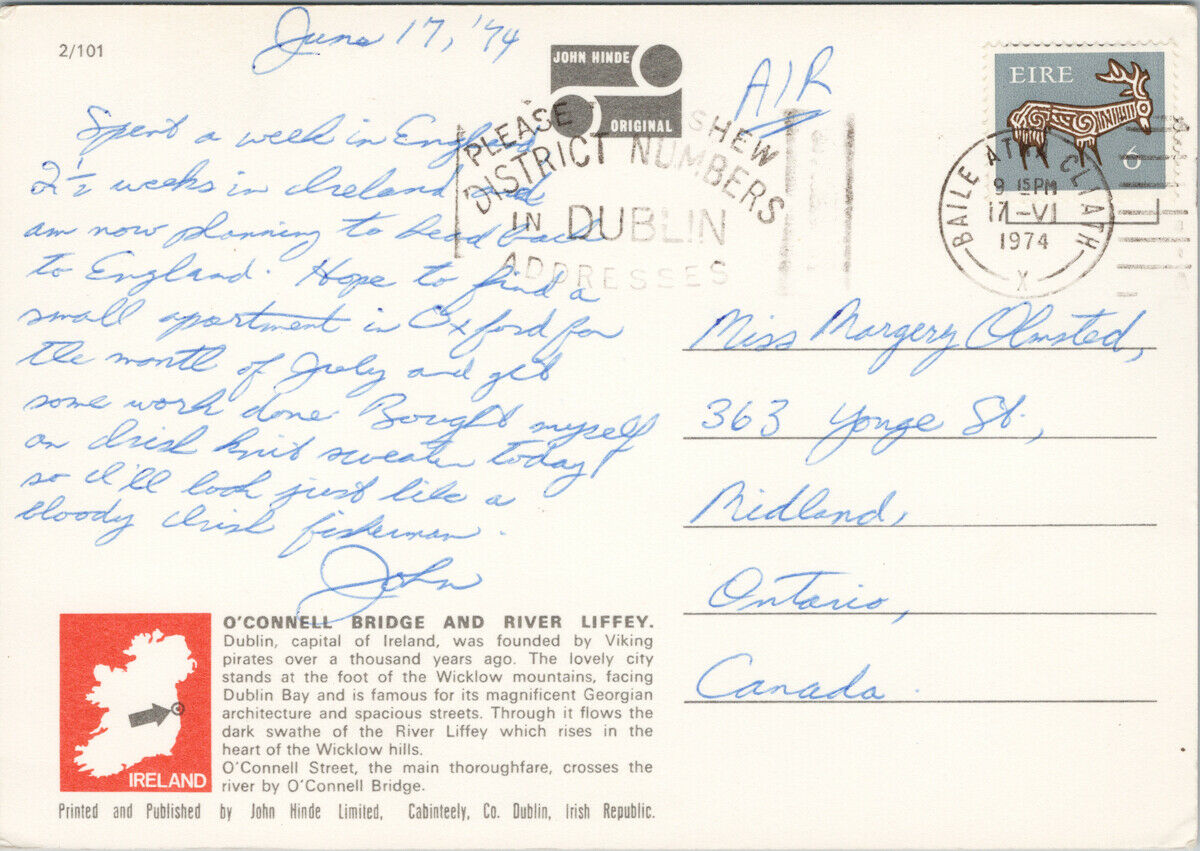 2/101
June 17, '74
JOHN HINDE
ORIGINAL
AIR
EIRE
6
PLEASE SHEW
DISTRICT NUMBERS
IN DUBLIN
ADDRESSES
BAILE ATHA CLIATH
9 15PM
17-VI
1974
X
Spent a week in England
2½ weeks in Ireland and
am now planning to head back
to England. Hope to find a
small apartment in Oxford for
the month of July and get
some work done. Bought myself
an Irish knit sweater today
so I'll look just like a
bloody Irish fisherman.
John
Miss Margery Olmsted,
363 Yonge St.,
Midland,
Ontario,
Canada.
IRELAND
O'CONNELL BRIDGE AND RIVER LIFFEY.
Dublin, capital of Ireland, was founded by Viking
pirates over a thousand years ago. The lovely city
stands at the foot of the Wicklow mountains, facing
Dublin Bay and is famous for its magnificent Georgian
architecture and spacious streets. Through it flows the
dark swathe of the River Liffey which rises in the
heart of the Wicklow hills.
O'Connell Street, the main thoroughfare, crosses the
river by O'Connell Bridge.
Printed and Published by John Hinde Limited, Cabinteely, Co. Dublin, Irish Republic.